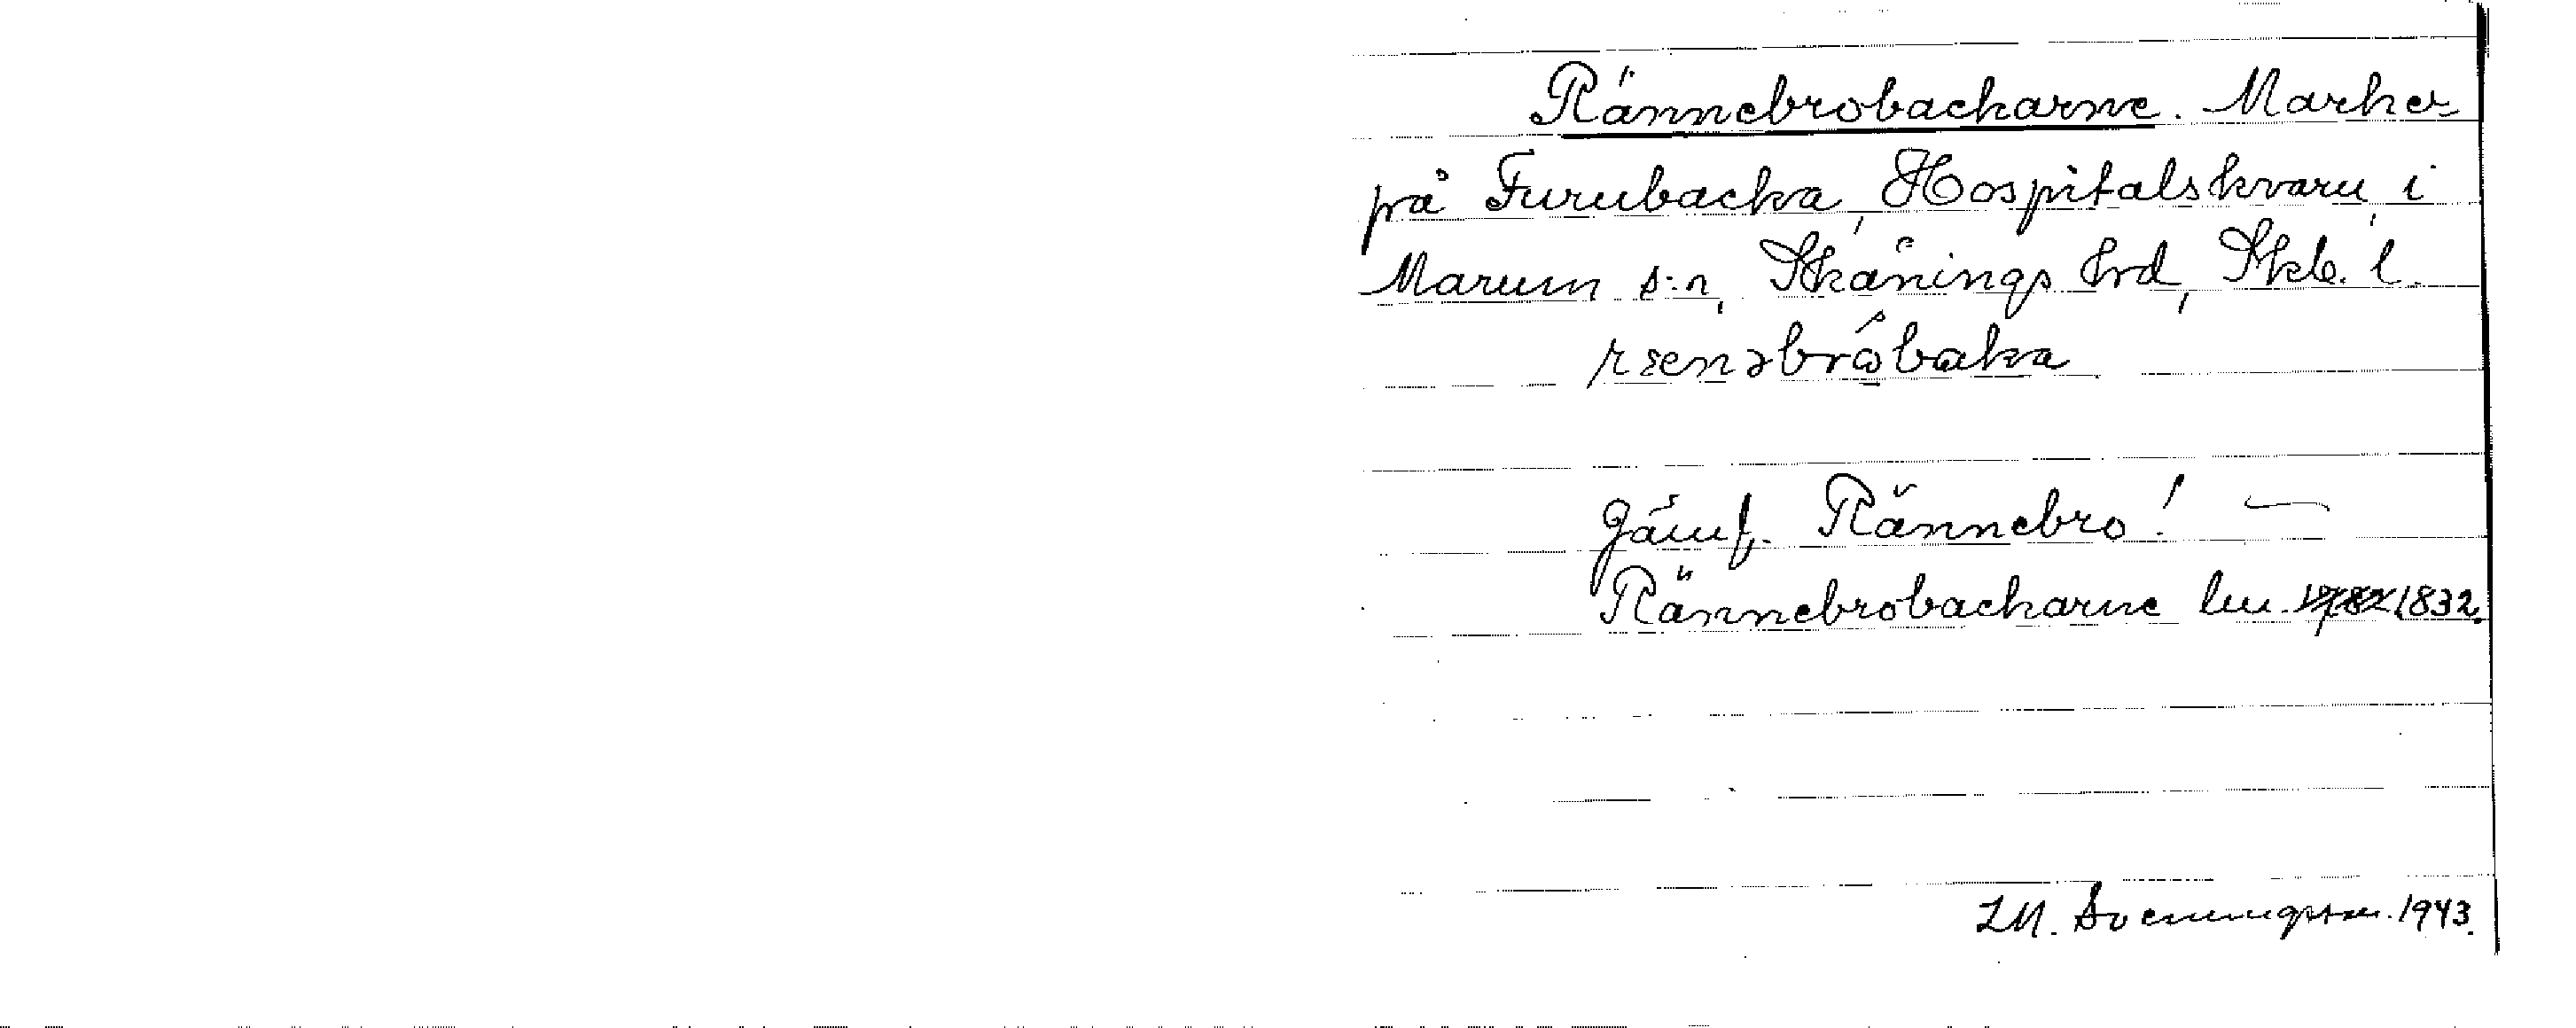 Rännebrobackarne. Marker
på Furubacka, Hospitalskvarn, i
Marum s:n, Skånings hrd, Skb. l.
Jämf. Rännebro!
Rännebrobackarne lm. 1832.
LM. Svenungsson. 1943.